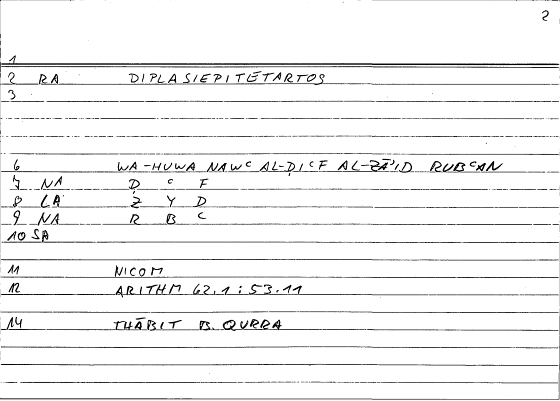 2
1
2 RA DIPLASIEPITÉTARTOS
3
6 WA-HUWA NAWᶜ AL-ḌIᶜF AL-ZĀʾID RUBᶜAN
7 NA Ḍ ᶜ F
8 LA Z Y D
9 NA R B ᶜ
10 SA
11 NICOM
12 ARITHM 62.1 : 53.11
14 THĀBIT B. QURRA